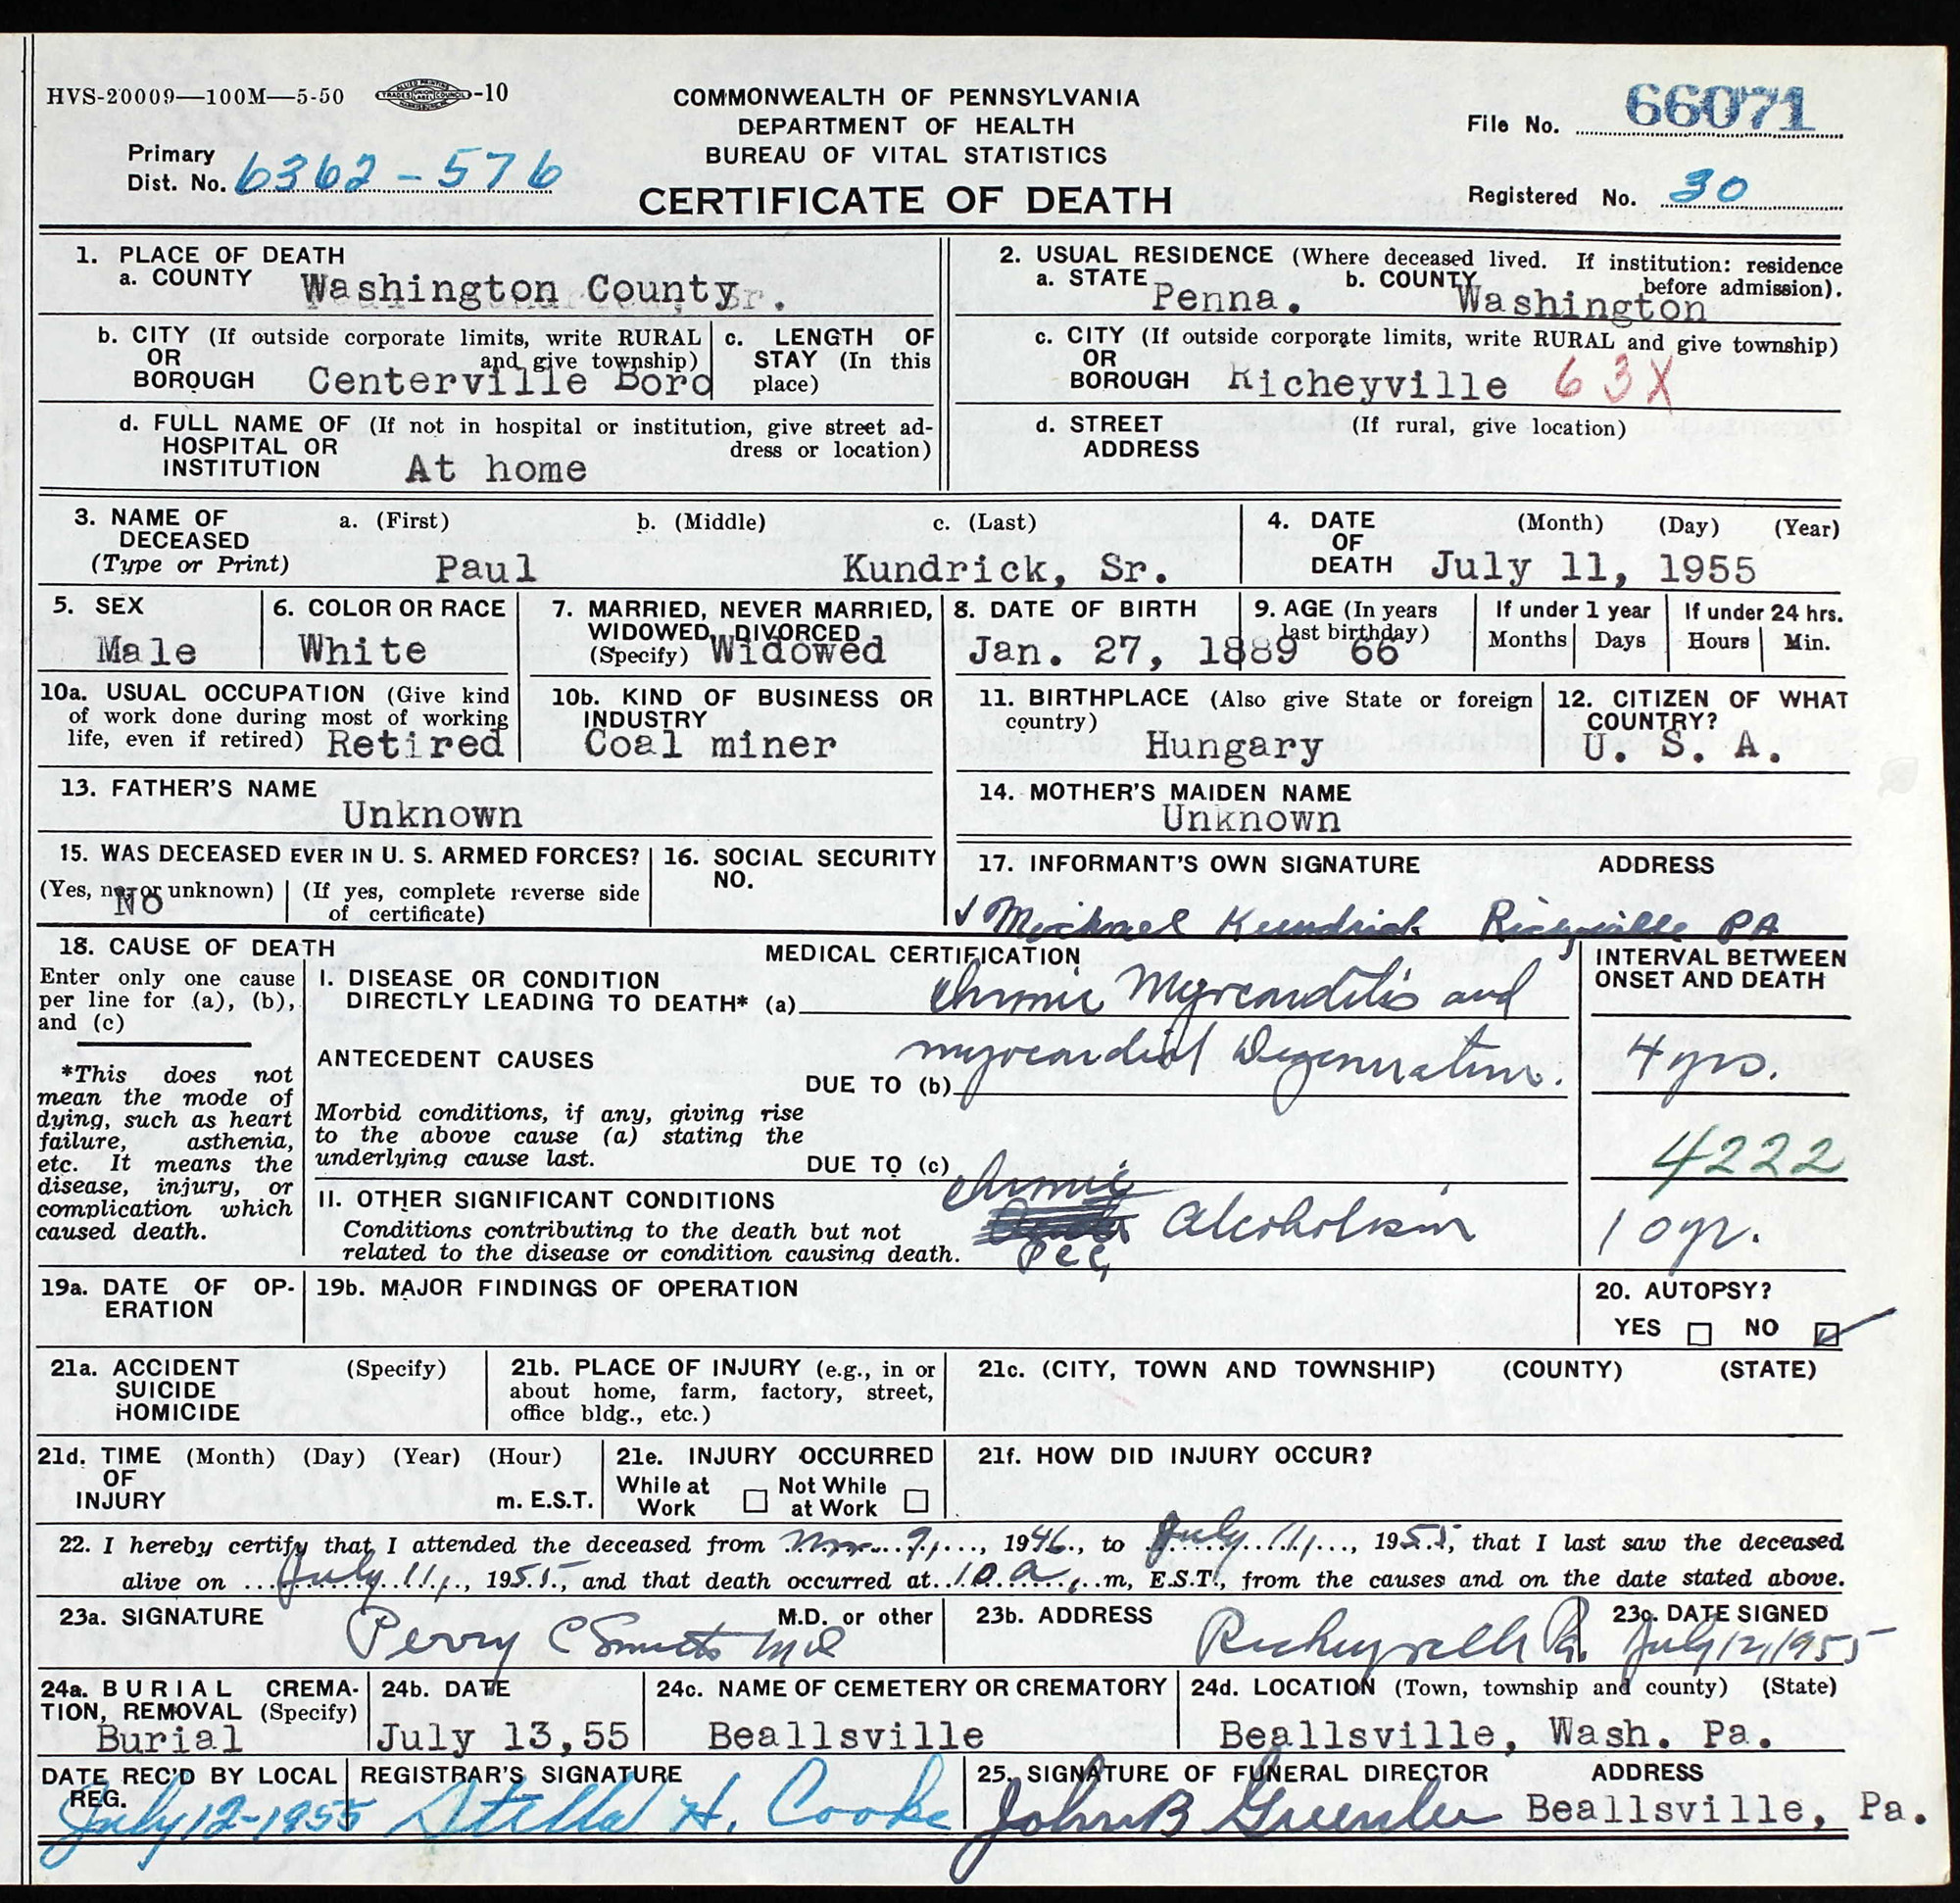 HVS-20009—100M—5-50 -10
COMMONWEALTH OF PENNSYLVANIA
DEPARTMENT OF HEALTH
BUREAU OF VITAL STATISTICS
CERTIFICATE OF DEATH
File No. 66071
Primary
Dist. No. 6362-576
Registered No. 30
1. PLACE OF DEATH
a. COUNTY Washington County
2. USUAL RESIDENCE (Where deceased lived. If institution: residence
before admission).
a. STATE Penna. b. COUNTY Washington
b. CITY (If outside corporate limits, write RURAL
OR and give township)
BOROUGH Centerville Boro
c. LENGTH OF
STAY (In this
place)
c. CITY (If outside corporate limits, write RURAL and give township)
OR
BOROUGH Richeyville 63X
d. FULL NAME OF (If not in hospital or institution, give street ad-
HOSPITAL OR dress or location)
INSTITUTION At home
d. STREET (If rural, give location)
ADDRESS
3. NAME OF a. (First) b. (Middle) c. (Last)
DECEASED
(Type or Print) Paul Kundrick, Sr.
4. DATE (Month) (Day) (Year)
OF
DEATH July 11, 1955
5. SEX
Male
6. COLOR OR RACE
White
7. MARRIED, NEVER MARRIED,
WIDOWED, DIVORCED
(Specify) Widowed
8. DATE OF BIRTH
Jan. 27, 1889
9. AGE (In years
last birthday)
66
If under 1 year
Months Days
If under 24 hrs.
Hours Min.
10a. USUAL OCCUPATION (Give kind
of work done during most of working
life, even if retired) Retired
10b. KIND OF BUSINESS OR
INDUSTRY
Coal miner
11. BIRTHPLACE (Also give State or foreign
country)
Hungary
12. CITIZEN OF WHAT
COUNTRY?
U. S. A.
13. FATHER'S NAME
Unknown
14. MOTHER'S MAIDEN NAME
Unknown
15. WAS DECEASED EVER IN U. S. ARMED FORCES?
(Yes, no, or unknown) (If yes, complete reverse side
of certificate)
No
16. SOCIAL SECURITY
NO.
17. INFORMANT'S OWN SIGNATURE ADDRESS
Michael Kundrick Richeyville PA
18. CAUSE OF DEATH
Enter only one cause
per line for (a), (b),
and (c)
*This does not
mean the mode of
dying, such as heart
failure, asthenia,
etc. It means the
disease, injury, or
complication which
caused death.
MEDICAL CERTIFICATION
I. DISEASE OR CONDITION
DIRECTLY LEADING TO DEATH* (a) Chronic Myocarditis and
ANTECEDENT CAUSES myocardial Degeneration.
DUE TO (b)
Morbid conditions, if any, giving rise
to the above cause (a) stating the
underlying cause last.
DUE TO (c)
II. OTHER SIGNIFICANT CONDITIONS chronic
Conditions contributing to the death but not Alcoholism
related to the disease or condition causing death. PCS
INTERVAL BETWEEN
ONSET AND DEATH
4 yrs.
4222
10 yr.
19a. DATE OF OP-
ERATION
19b. MAJOR FINDINGS OF OPERATION
20. AUTOPSY?
YES NO
21a. ACCIDENT (Specify)
SUICIDE
HOMICIDE
21b. PLACE OF INJURY (e.g., in or
about home, farm, factory, street,
office bldg., etc.)
21c. (CITY, TOWN AND TOWNSHIP) (COUNTY) (STATE)
21d. TIME (Month) (Day) (Year) (Hour)
OF
INJURY m. E.S.T.
21e. INJURY OCCURRED
While at Not While
Work at Work
21f. HOW DID INJURY OCCUR?
22. I hereby certify that I attended the deceased from Nov. 9, 1946, to July 11, 1955, that I last saw the deceased
alive on July 11, 1955, and that death occurred at 10 a. m, E.S.T., from the causes and on the date stated above.
23a. SIGNATURE M.D. or other
Perry C Smith MD
23b. ADDRESS
Richeyville Pa.
23c. DATE SIGNED
July 12, 1955
24a. BURIAL CREMA-
TION, REMOVAL (Specify)
Burial
24b. DATE
July 13,55
24c. NAME OF CEMETERY OR CREMATORY
Beallsville
24d. LOCATION (Town, township and county) (State)
Beallsville, Wash. Pa.
DATE REC'D BY LOCAL
REG.
July 12-1955
REGISTRAR'S SIGNATURE
Stella H. Cooke
25. SIGNATURE OF FUNERAL DIRECTOR ADDRESS
John B Greenlee Beallsville, Pa.